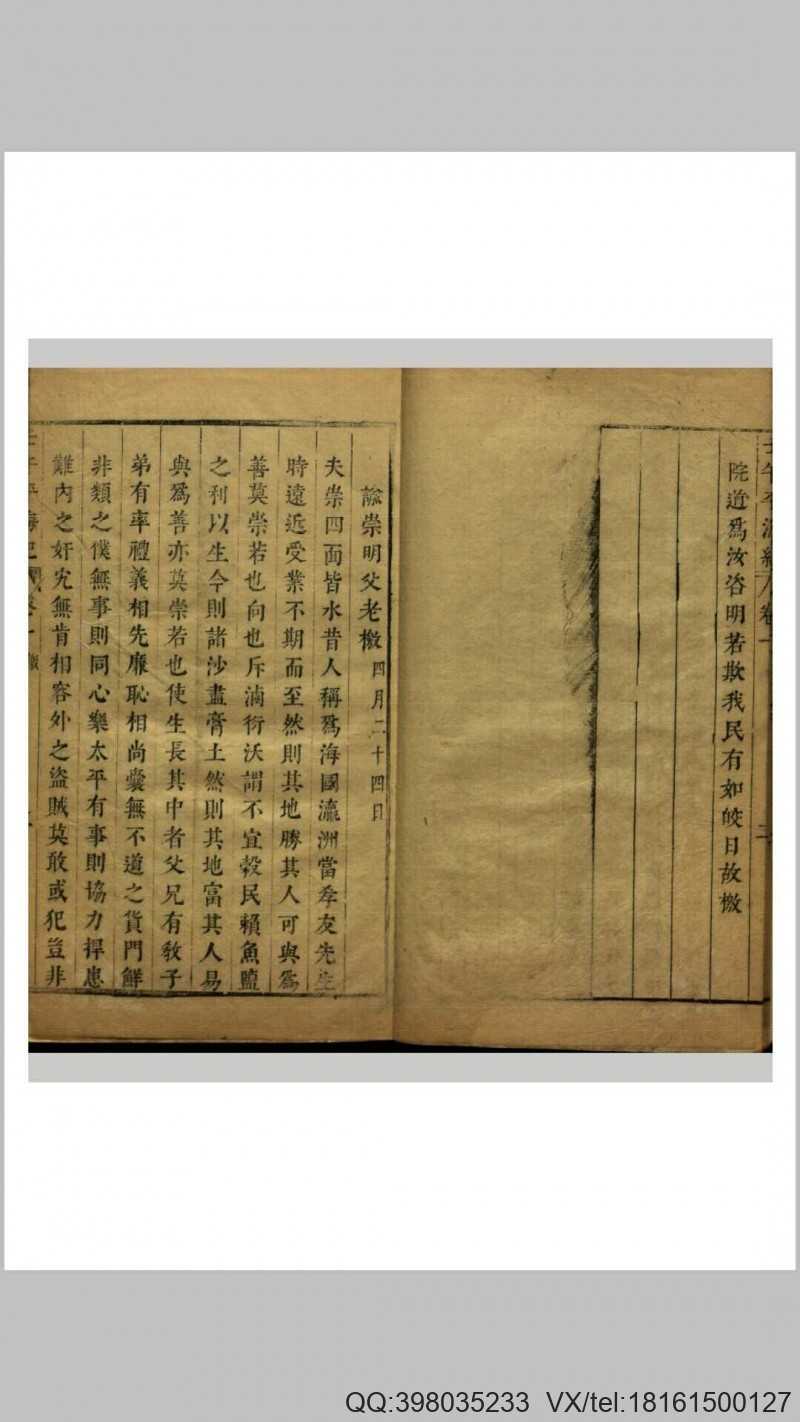 院道爲汝咨明若欺我民有如皎日故檄
諭崇明父老檄 四月二十四日
夫崇四面皆水昔人稱爲海國瀛洲當季友先生
時遠近受業不期而至然則其地勝其人可與爲
善莫崇若也向也斥滷衍沃謂不宜穀民賴魚鹽
之利以生今則諸沙盡膏土然則其地富其人易
與爲善亦莫崇若也使生長其中者父兄有敎子
弟有率禮義相先廉恥相尚橐無不道之貨門鮮
非類之僕無事則同心樂太平有事則協力捍患
難內之奸宄無肯相容外之盜賊莫敢或犯豈非
QQ:398035233 VX/tel:18161500127